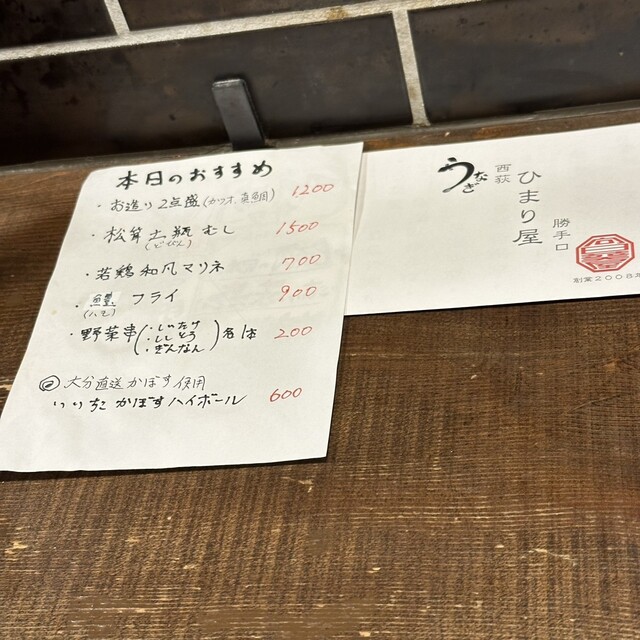 本日のおすすめ
・お造り2点盛(カツオ、真鯛) 1200
・松茸土瓶むし 1500
(どびん)
・若鶏和風マリネ 700
・鱧フライ 900
(ハモ)
・野菜串(・しいたけ
・ししとう
・ぎんなん)各1本 200
大分直送かぼす使用
いいちこかぼすハイボール 600
うなぎ
西荻
ひまり屋
勝手口
創業2008年